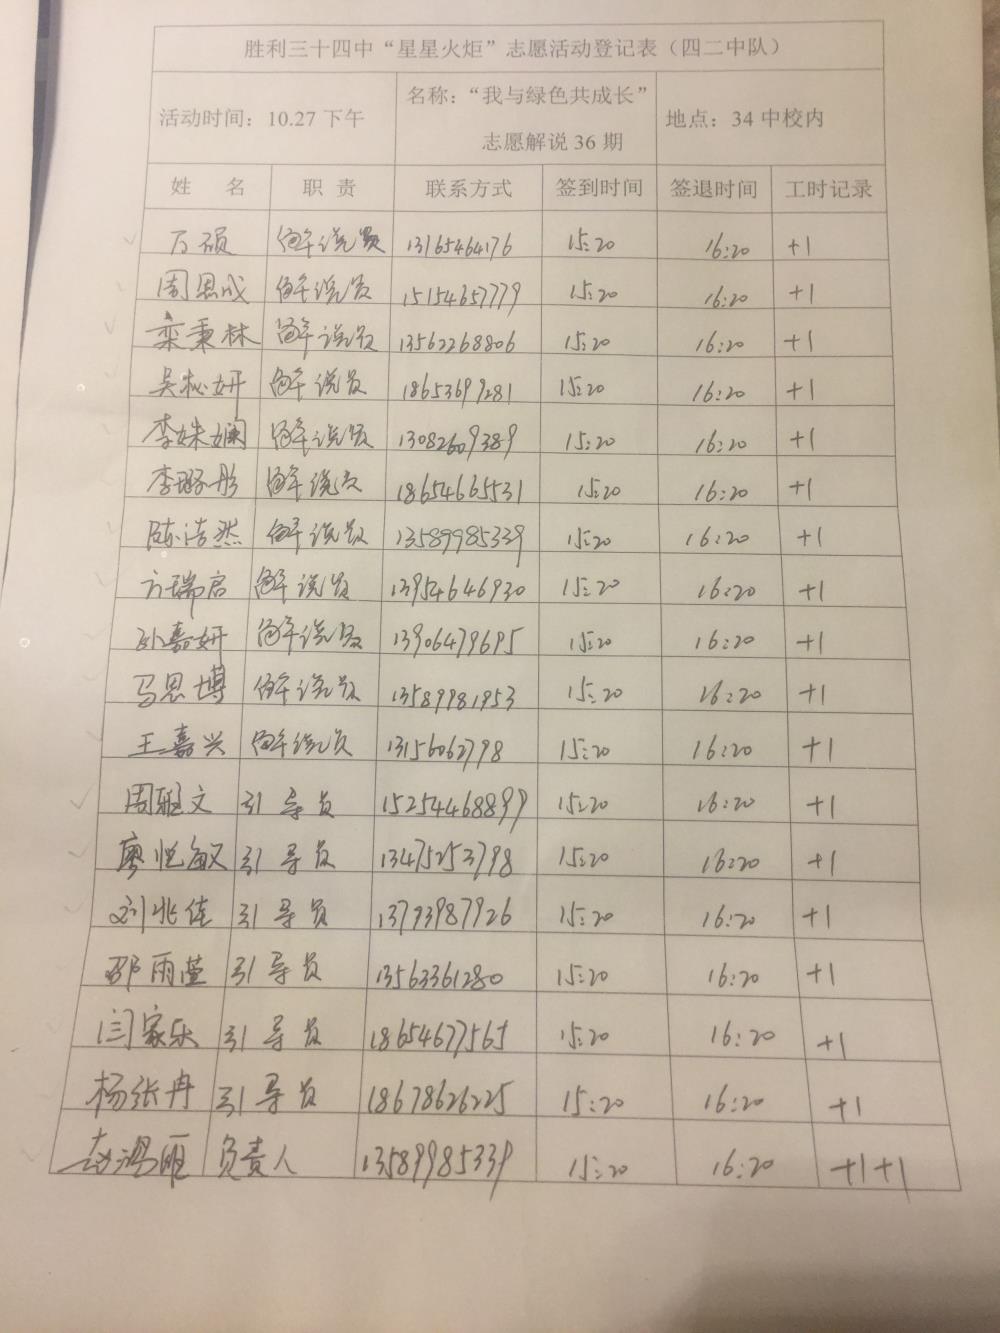 胜利三十四中“星星火炬”志愿活动登记表（四二中队）
活动时间：10.27下午 名称：“我与绿色共成长” 志愿解说36期 地点：34中校内
姓 名 职 责 联系方式 签到时间 签退时间 工时记录
万硕 解说员 13165464176 15:20 16:20 +1
周恩成 解说员 15154657779 15:20 16:20 +1
栾秉林 解说员 13562268806 15:20 16:20 +1
吴松妍 解说员 18653699281 15:20 16:20 +1
李姝娴 解说员 13082609389 15:20 16:20 +1
李璐彤 解说员 18654665531 15:20 16:20 +1
陈浩然 解说员 13589985339 15:20 16:20 +1
方瑞启 解说员 13954646930 15:20 16:20 +1
孙嘉妍 解说员 13906479695 15:20 16:20 +1
马思博 解说员 13589981953 15:20 16:20 +1
王嘉兴 解说员 13156062798 15:20 16:20 +1
周雅文 引导员 15254468899 15:20 16:20 +1
廖悦敏 引导员 13475253798 15:20 16:20 +1
刘兆佳 引导员 13793987926 15:20 16:20 +1
邵雨萱 引导员 13563361280 15:20 16:20 +1
闫家乐 引导员 18654677565 15:20 16:20 +1
杨张冉 引导员 18678626225 15:20 16:20 +1
赵鸿雁 负责人 13589985339 15:20 16:20 +1+1